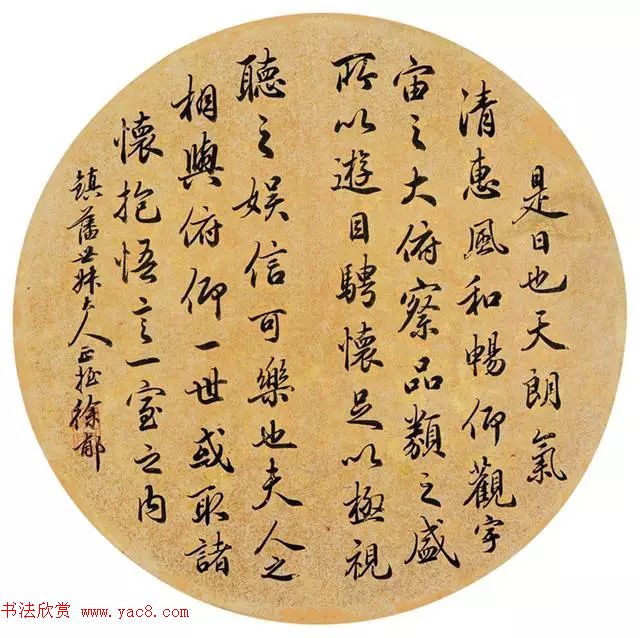 是日也天朗氣
清惠風和暢仰觀宇
宙之大俯察品類之盛
所以遊目騁懷足以極視
聽之娛信可樂也夫人之
相與俯仰一世或取諸
懷抱悟言一室之内
鎮藩世妹夫人正拙徐郙
书法欣赏 www.yac8.com